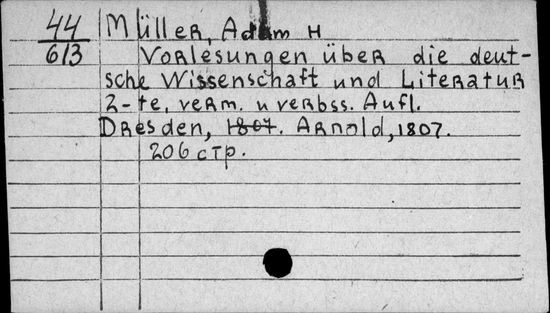 44 Müller, Adam H
613 Vorlesungen über die deut-
sche Wissenschaft und Literatur
2-te, verm. u verbss. Aufl.
Dresden, 1807. Arnold, 1807.
206 стр.